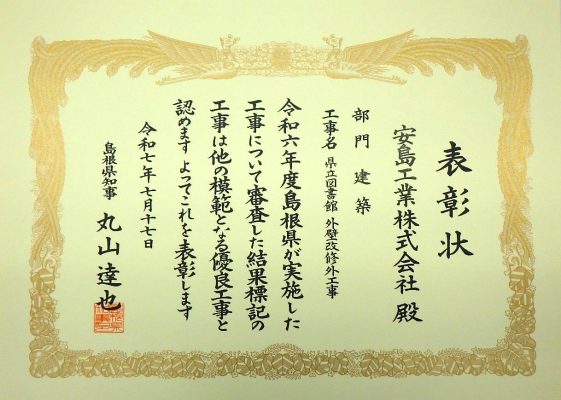 表彰状
安島工業株式会社 殿
部門 建築
工事名 県立図書館 外壁改修外工事
令和六年度島根県が実施した
工事について審査した結果標記の
工事は他の模範となる優良工事と
認めます よってこれを表彰します
令和七年七月十七日
島根県知事 丸山達也